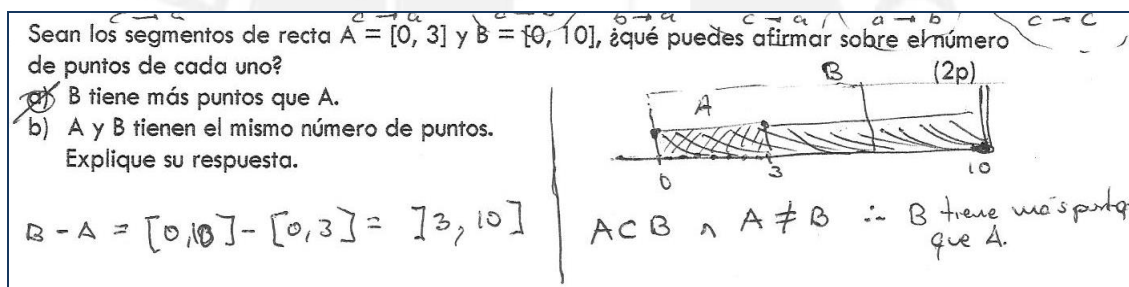 c → a c → a b → a c → a a → b c → c
Sean los segmentos de recta A = [0, 3] y B = [0, 10], ¿qué puedes afirmar sobre el número
de puntos de cada uno?
(2p)
a) B tiene más puntos que A.
b) A y B tienen el mismo número de puntos.
Explique su respuesta.
B
A
0 3 10
B - A = [0,10] - [0,3] = ]3, 10]
A ⊂ B ∧ A ≠ B ∴ B tiene más puntos
que A.